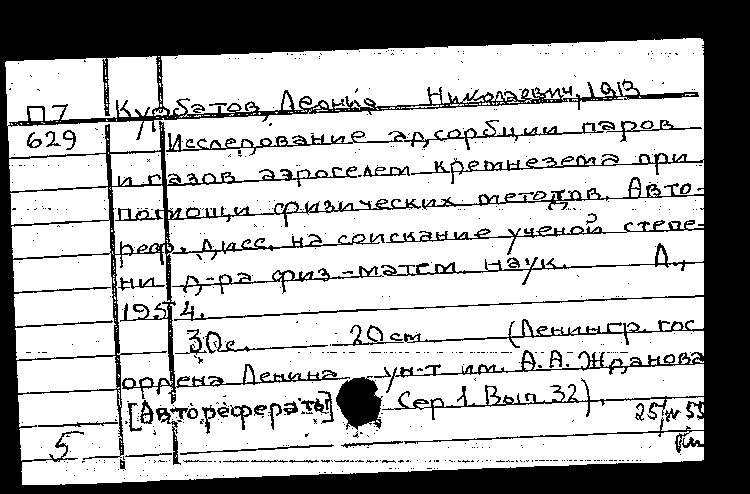 П7 Курбатов, Леонид Николаевич, 1913
629 Исследование адсорбции паров
и газов аэрогелем кремнезема при
помощи физических методов. Авто-
реф. дисс. на соискание ученой степе-
ни д-ра физ.-матем. наук. Л.,
1954.
30с. 20 cm (Ленингр. гос
ордена Ленина ун-т им. А.А. Жданова
[Авторефераты] Сер 1. Вып 32).
25/IV 55
5